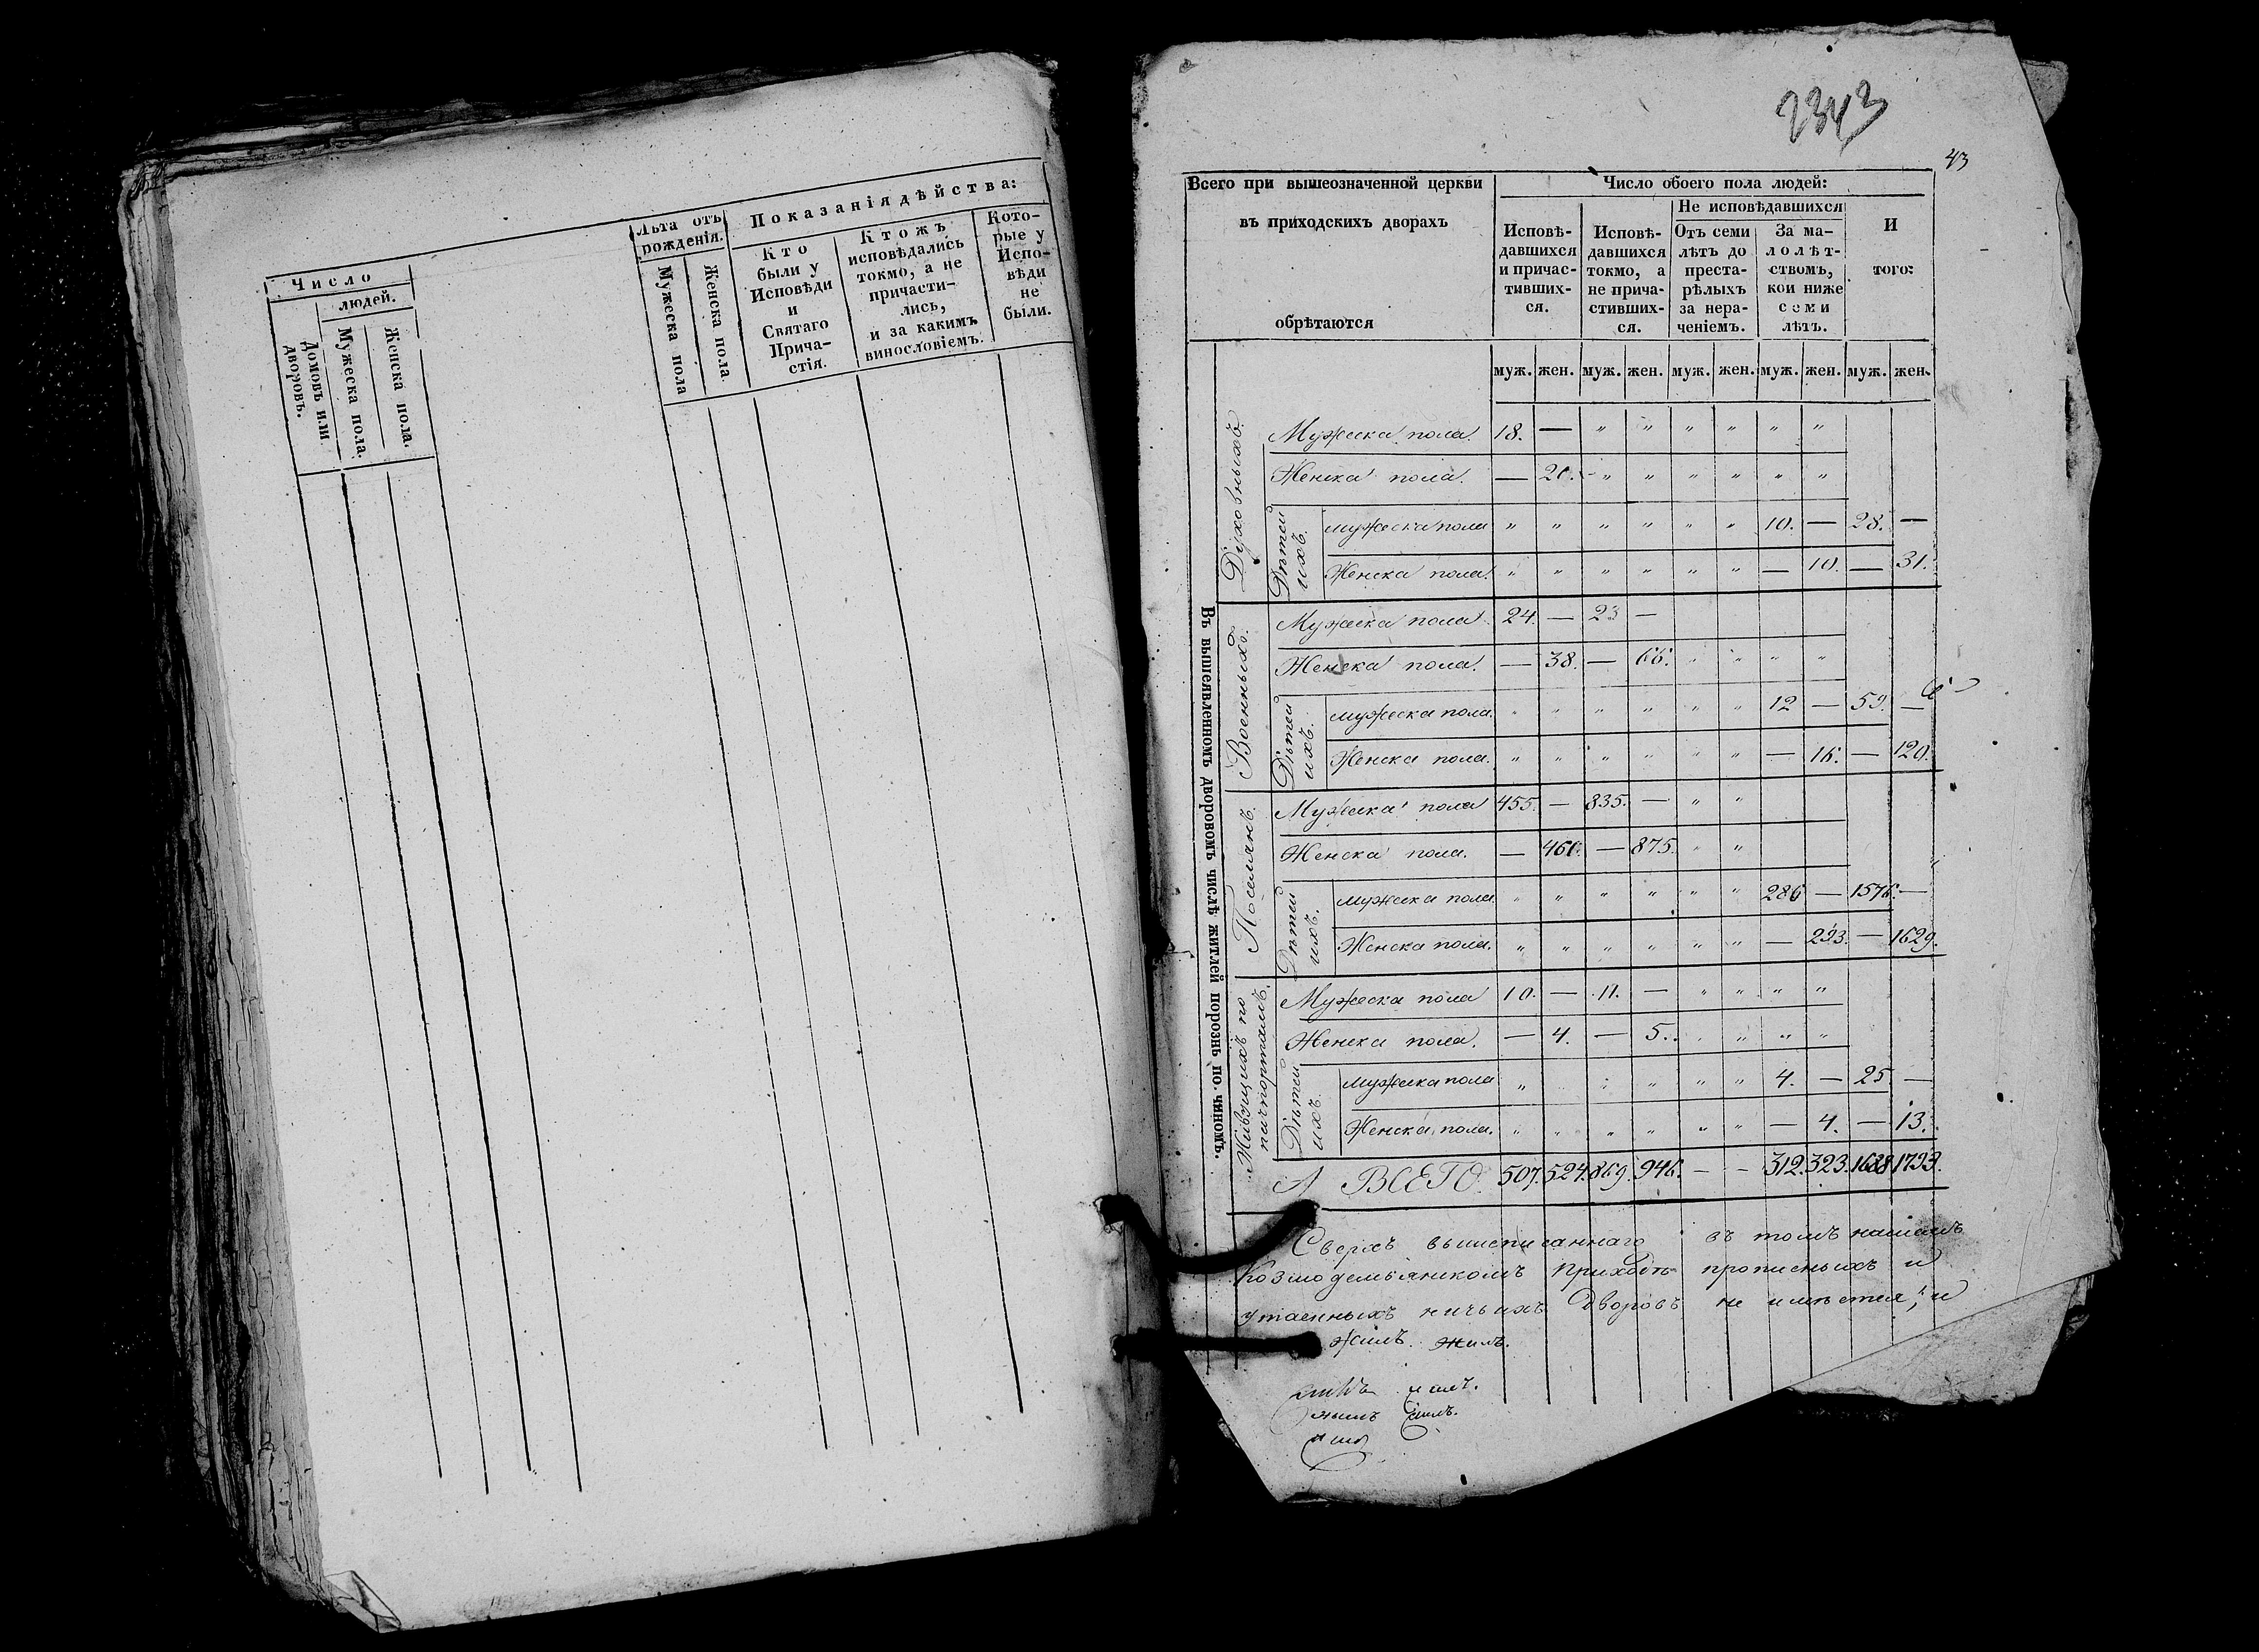 Число
людей.
Домовъ или дворовъ.
Мужеска пола.
Женска пола.
Лѣта отъ рожденія.
Мужеска пола
Женска пола.
Показанія дѣйства:
Кто
были у
Исповѣди
и
Святаго
Прича-
стія.
Ктожъ
исповѣдались
токмо, а не
причасти-
лись,
и за какимъ
винословіемъ.
Кото-
рые у
Испо-
вѣди
не
были.
2343
43
Всего при вышеозначенной церкви
въ приходскихъ дворахъ
обрѣтаются
Число обоего пола людей:
Исповѣ-
давшихся
и причас-
тивших-
ся.
Исповѣ-
давшихся
токмо, а
не прича-
стивших-
ся.
Не исповѣдавшихся
Отъ семи
лѣтъ до
преста-
рѣлыхъ
за нера-
ченіемъ.
За ма-
лолѣт-
ствомъ,
кои ниже
семи
лѣтъ.
И
того:
муж. жен. муж. жен. муж. жен. муж. жен. муж. жен.
Въ вышеявленномъ дворовомъ числѣ жителей порознь по чиномъ.
Духовныхъ.
Мужеска пола. 18. — " " " " " "
Женска пола. — 20. " " " " " "
Дѣтей ихъ.
мужеска пола " " " " " " 10. — 28. —
Женска пола. " " " " " " — 10. — 31.
Военныхъ.
Мужеска пола. 24. — 23 —
Женска пола. — 38. — 66. " " " "
Дѣтей ихъ.
мужеска пола. " " " " " " 12 — 59. —
Женска пола. " " " " " " — 16. — 120.
Поселянъ.
Мужеска пола 455. — 835. — " "
Женска пола. — 460. — 875. " "
Дѣтей ихъ.
мужеска пола " " " " " " 286 — 1576. —
Женска пола. " " " " " " — 293. — 1629.
Живущихъ по пачпортамъ.
Мужеска пола 10. — 11. — " " " "
Женска пола. — 4. — 5. " " " "
Дѣтей ихъ.
мужеска пола " " " " " " 4. — 25 —
Женска пола. " " " " " " — 4. — 13.
А ВСЕГО. 507. 524. 869. 946. — — 312. 323. 1688 1793.
Сверхъ вышеписаннаго въ томъ нашемъ
Козмодемьянскомъ приходѣ прописныхъ и
утаенныхъ ничьихъ дворовъ не имѣется, и